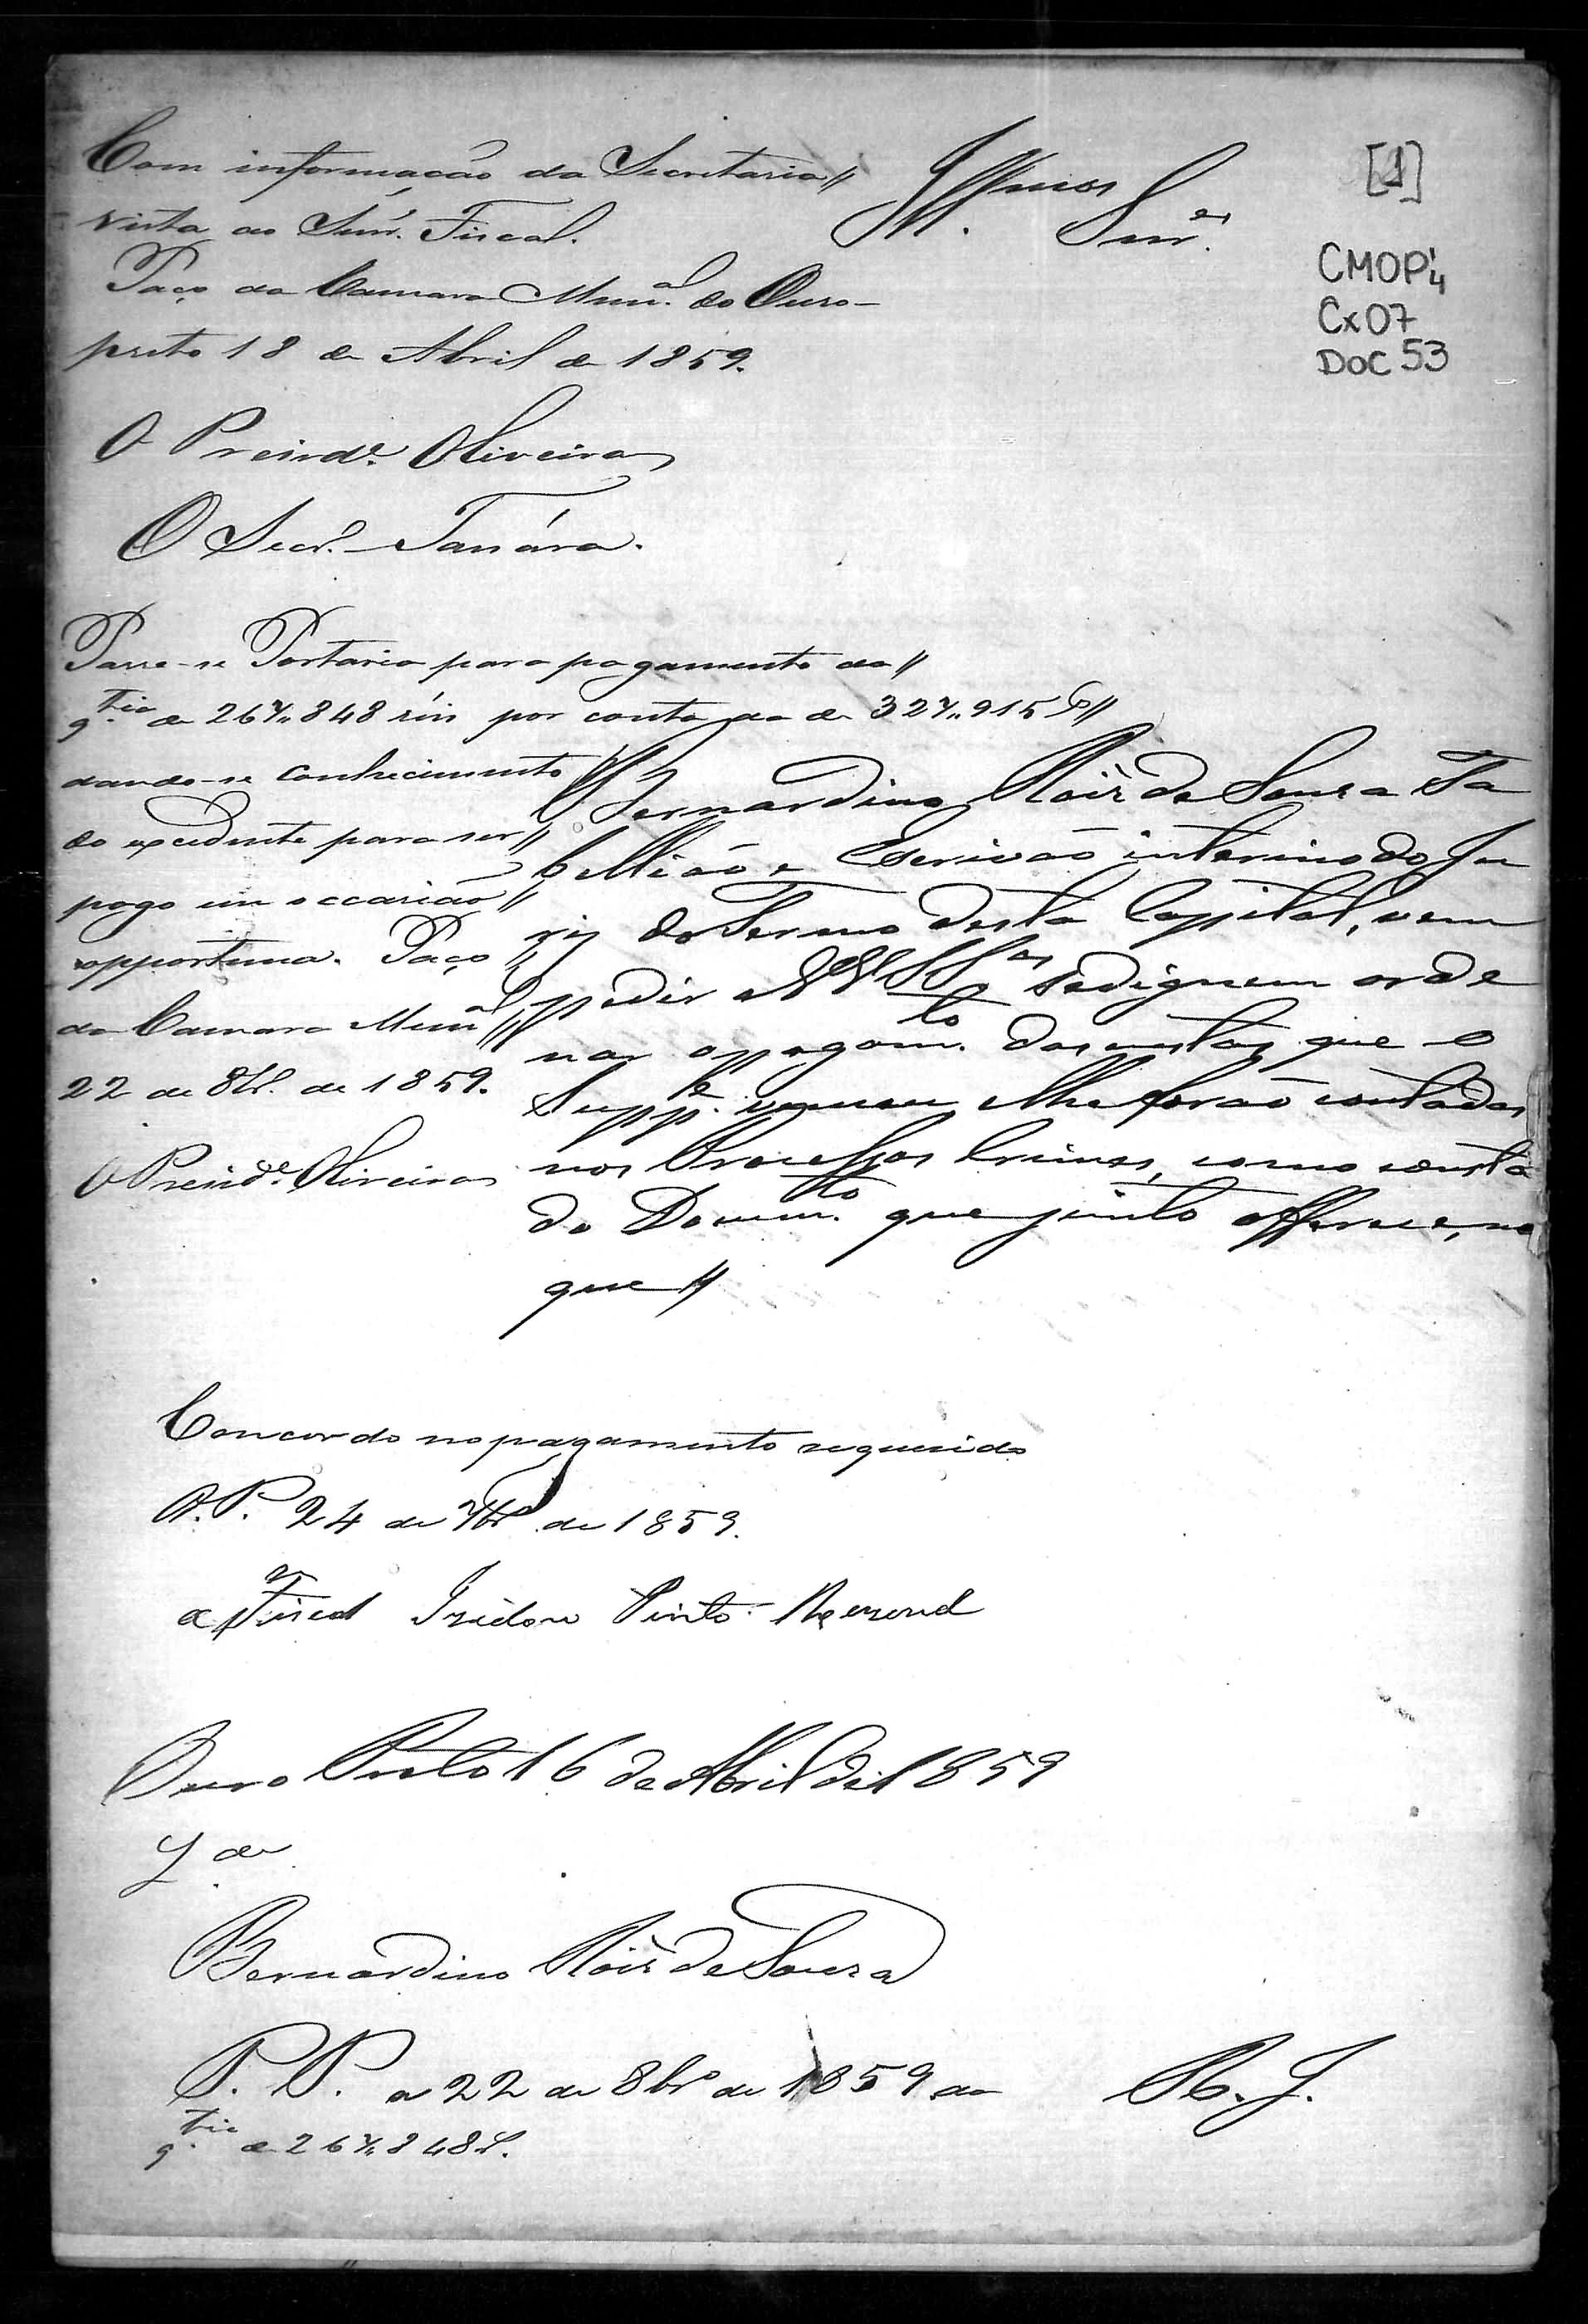 [1]
CMOP4
Cx07
DOC 53
Illmos Snr.es
Com informação da Secretaria //
vista ao Snr. Fiscal.
Paço da Camara Mun.al do Ouro-
preto 18 de Abril de 1859.
O Preside. Oliveira
O Secr.
Passe-se Portaria para pagamento da //
q.tia de 26 848 réis por conta da de 327.. 915 //
dando-se conhecimento
do excedente para ser //
pago em occasião //
opportuna. Paço //
da Camara Mun.al //
22 de 8br. de 1859.
O Presid.e Oliveira
Bernardino Roiz de Souza Ta
bellião e Escrivão interino do Ju
ry do Termo desta Capital, vem
pedir a VV SS.as se dignem orde
nar o pagam.to das custas que o
Supp.e venceu e lhe forão contadas
nos Processos Crimes, como consta
do Docum.to que junto offerece, no
que //
Concordo no pagamento requerido
O. P. 24 de 7br.o de 1859.
o Fiscal Izidoro Pinto Rezend
Ouro Preto 16 de Abril de 1859
Bernardino Roiz de Souza
P. P. a 22 de 8br.o de 1859 da
q.tia de 26 848 r.
R. J.